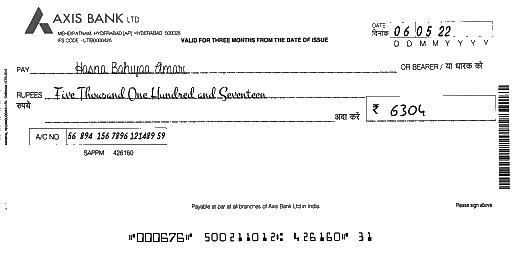 AXIS BANK LTD
MEHDIPATNAM, HYDERABAD (AP) HYDERABAD 500028
IFS CODE - UTIB0000426
VALID FOR THREE MONTHS FROM THE DATE OF ISSUE
DATE
दिनांक 06 05 22
D D M M Y Y Y Y
PAY Hasna
OR BEARER / या धारक को
RUPEES Five Thousand One Hundred and Seventeen
रुपये
अदा करें ₹ 6304
A/C NO 56 894 156 7896 121489 59
SAPPM 426160
Payable at par at all branches of Axis Bank Ltd in India.
Please sign above
⑈000676⑈ 500211012⑆ 426160⑈ 31